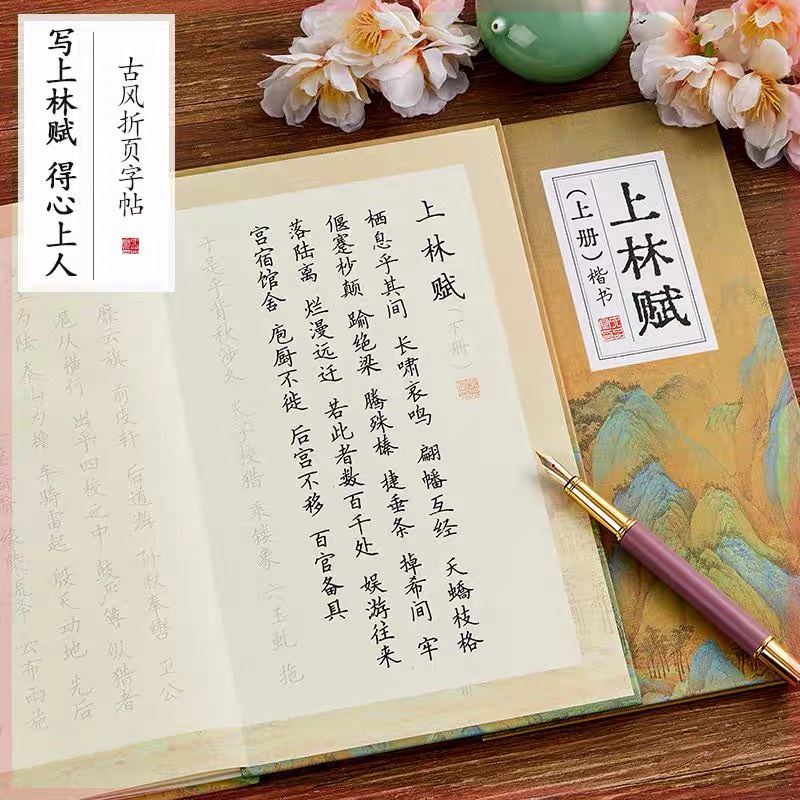 古风折页字帖
写上林赋 得心上人
上林赋
(上册)楷书
上林赋(下册)
栖息乎其间 长啸哀鸣 翩幡互经 夭蟜枝格
偃蹇杪颠 踰绝梁 腾殊榛 捷垂条 掉希间 牢
落陆离 烂漫远迁 若此者数百千处 娱游往来
宫宿馆舍 庖厨不徙 后宫不移 百官备具
于是乎背秋涉冬 天子校猎 乘镂象 六玉虬 拖
靡云旗 前皮轩 后道游 孙叔奉辔 卫公
扈从横行 出乎四校之中 鼓严簿 纵猎者
为阹 泰山为橹 车骑雷起 殷天动地 先后
缘陵流泽 云布雨施